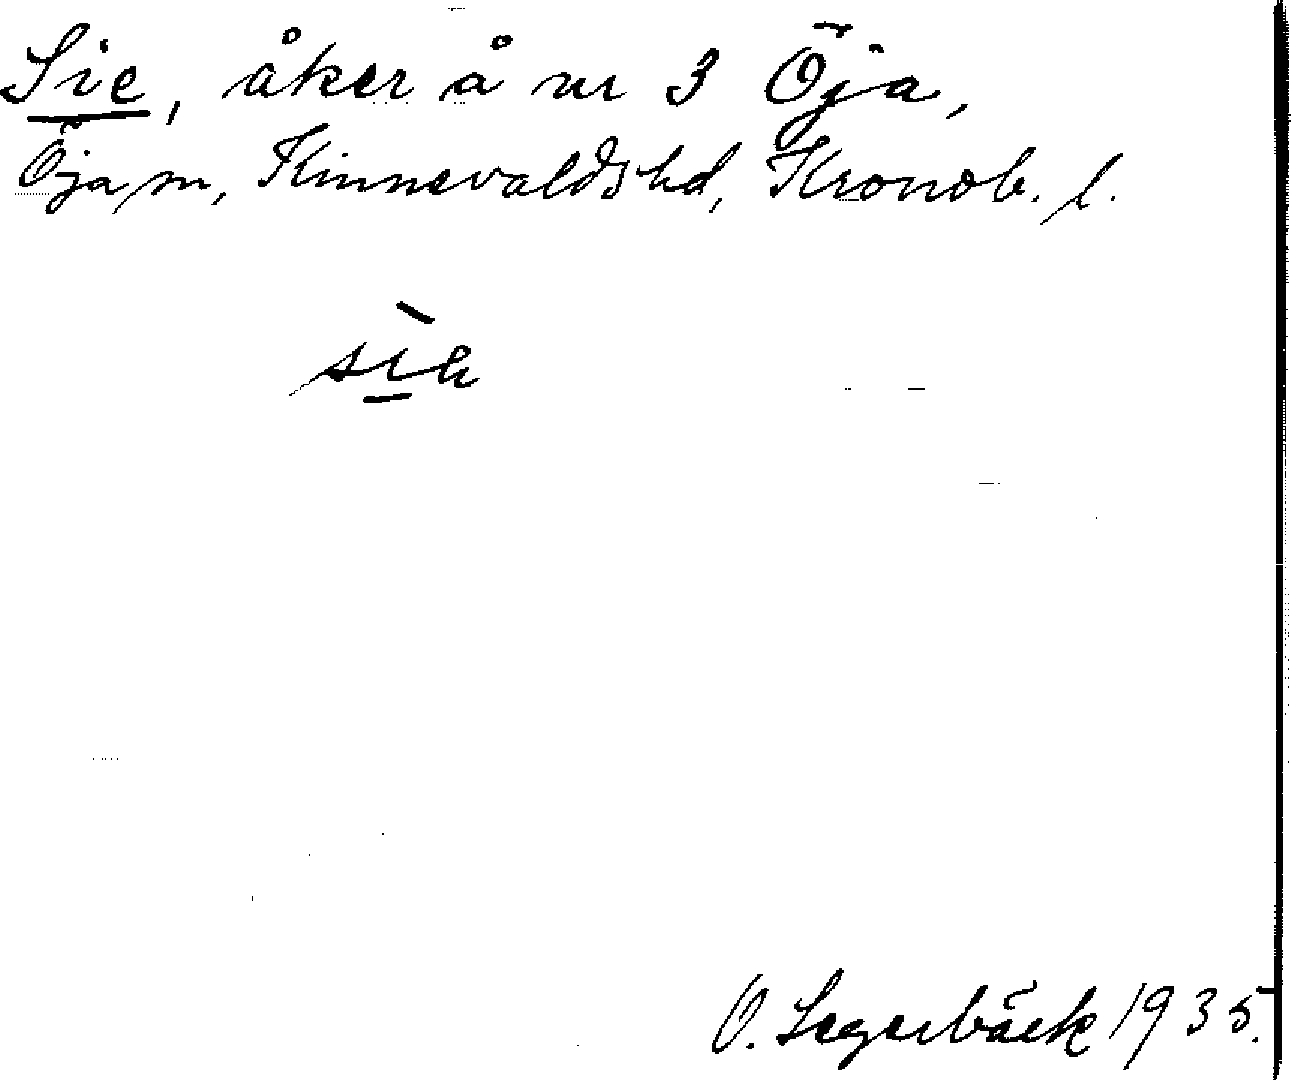 Sie, åker å nr 3 Öja,
Öja sn, Kinnevalds hd, Kronob. l.
O. Segerbäck 1935.